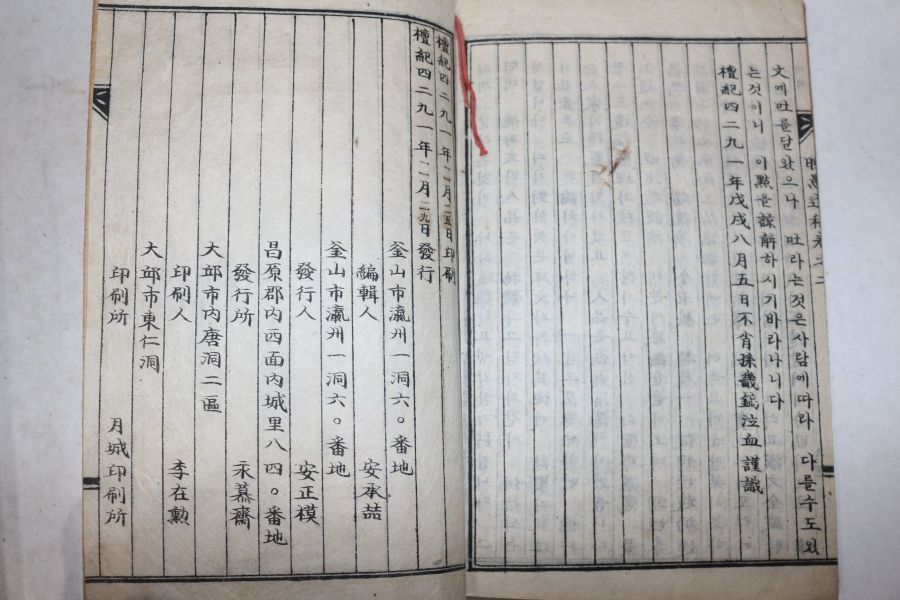 卷之二
文에吐를달았으나 吐라는것은사람에따라 다를수도있
는것이니 이點을諒解하시기바라나니다
檀紀四二九一年戊戌八月五日不肖孫畿鎬泣血謹識
檀紀四二九一年一一月二五日印刷
檀紀四二九一年一一月二九日發行
釜山市瀛州一洞六〇番地
編輯人 安承喆
釜山市瀛州一洞六〇番地
發行人 安正模
昌原郡內西面內城里八四〇番地
發行所 永慕齋
大邱市內唐洞二區
印刷人 李在勳
大邱市東仁洞
印刷所 月城印刷所